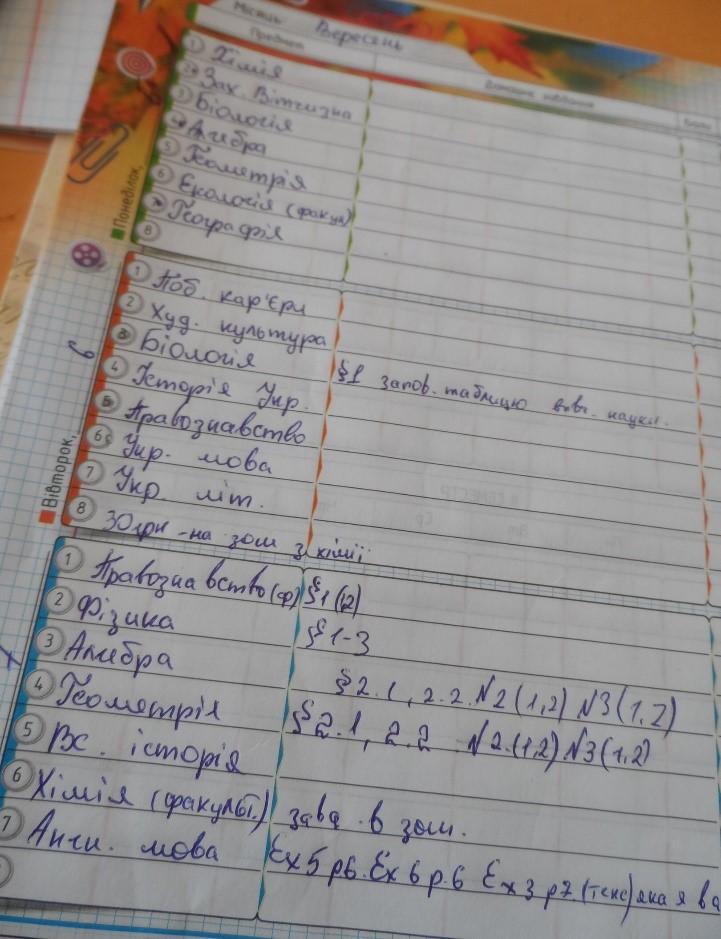 Місяць Вересень
Предмет Домашнє завдання
1 Хімія
2 Зах. Вітчизна
3 Біологія
4 Алгебра
5 Геометрія
6 Екологія (факул)
7 Географія
8
Понеділок,
1 Поб. кар'єри
2 Худ. культура
3 Біологія
4 Історія Укр. §1 запов. таблицю науки.
5 Правознавство
6 Укр. мова
7 Укр. літ.
8 30грн - на зош з хімії
Вівторок,
1 Правознавство (ф) §1 (12)
2 Фізика §1-3
3 Алгебра §2.1, 2.2. №2 (1,2) №3 (1,2)
4 Геометрія §2.1, 2.2 №2.(1,2) №3 (1,2)
5 Вс. історія
6 Хімія (факульт.) завд. в зош.
7 Англ. мова Ex 5 p6. Ex 6 p.6 Ex 3 p7. (текс) яка я ва